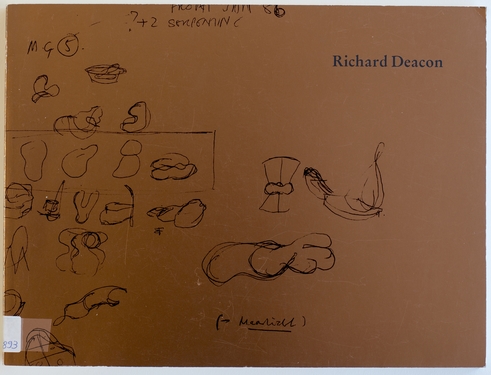 FROM JAM 86
?+2 SERPENTINE
MG 5.
Richard Deacon
893